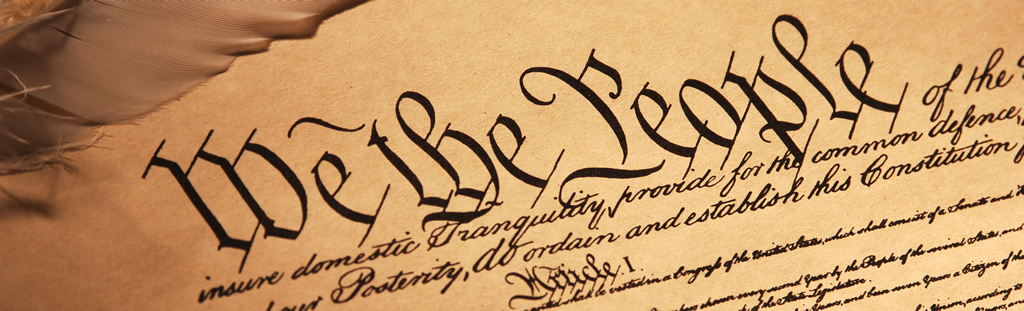 We the People of the
insure domestic Tranquility, provide for the common defence,
our Posterity, do ordain and establish this Constitution
Article I
vested in a Congress of the United States, which shall consist of a Senate and
chosen every second Year by the People of the several States, and
of the State Legislature.
Years, and been seven Years a Citizen of the
Union, according to